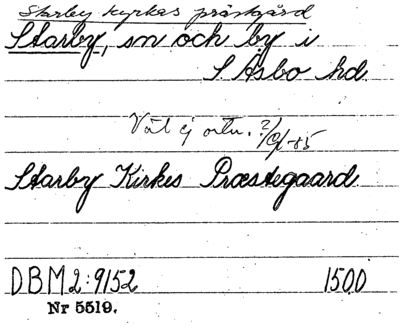 Starby kyrkas prästgård
Starby, sn och by i
S. Åsbo hd.
Starby Kirkes Præstegaard
DBM2:9152 1500
Nr 5519.